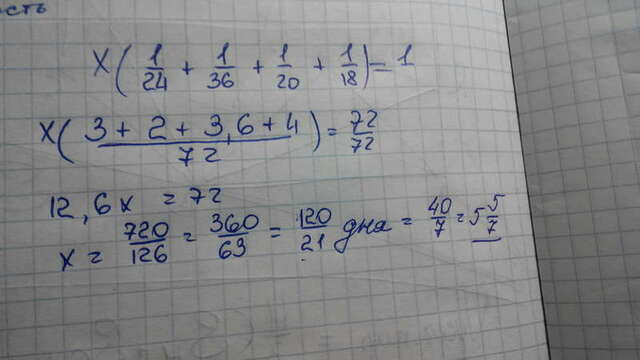 сть
x(1/24 + 1/36 + 1/20 + 1/18) = 1
x(3 + 2 + 3,6 + 4 / 72) = 72/72
12,6x = 72
x = 720/126 = 360/63 = 120/21 дня = 40/7 = 5 5/7